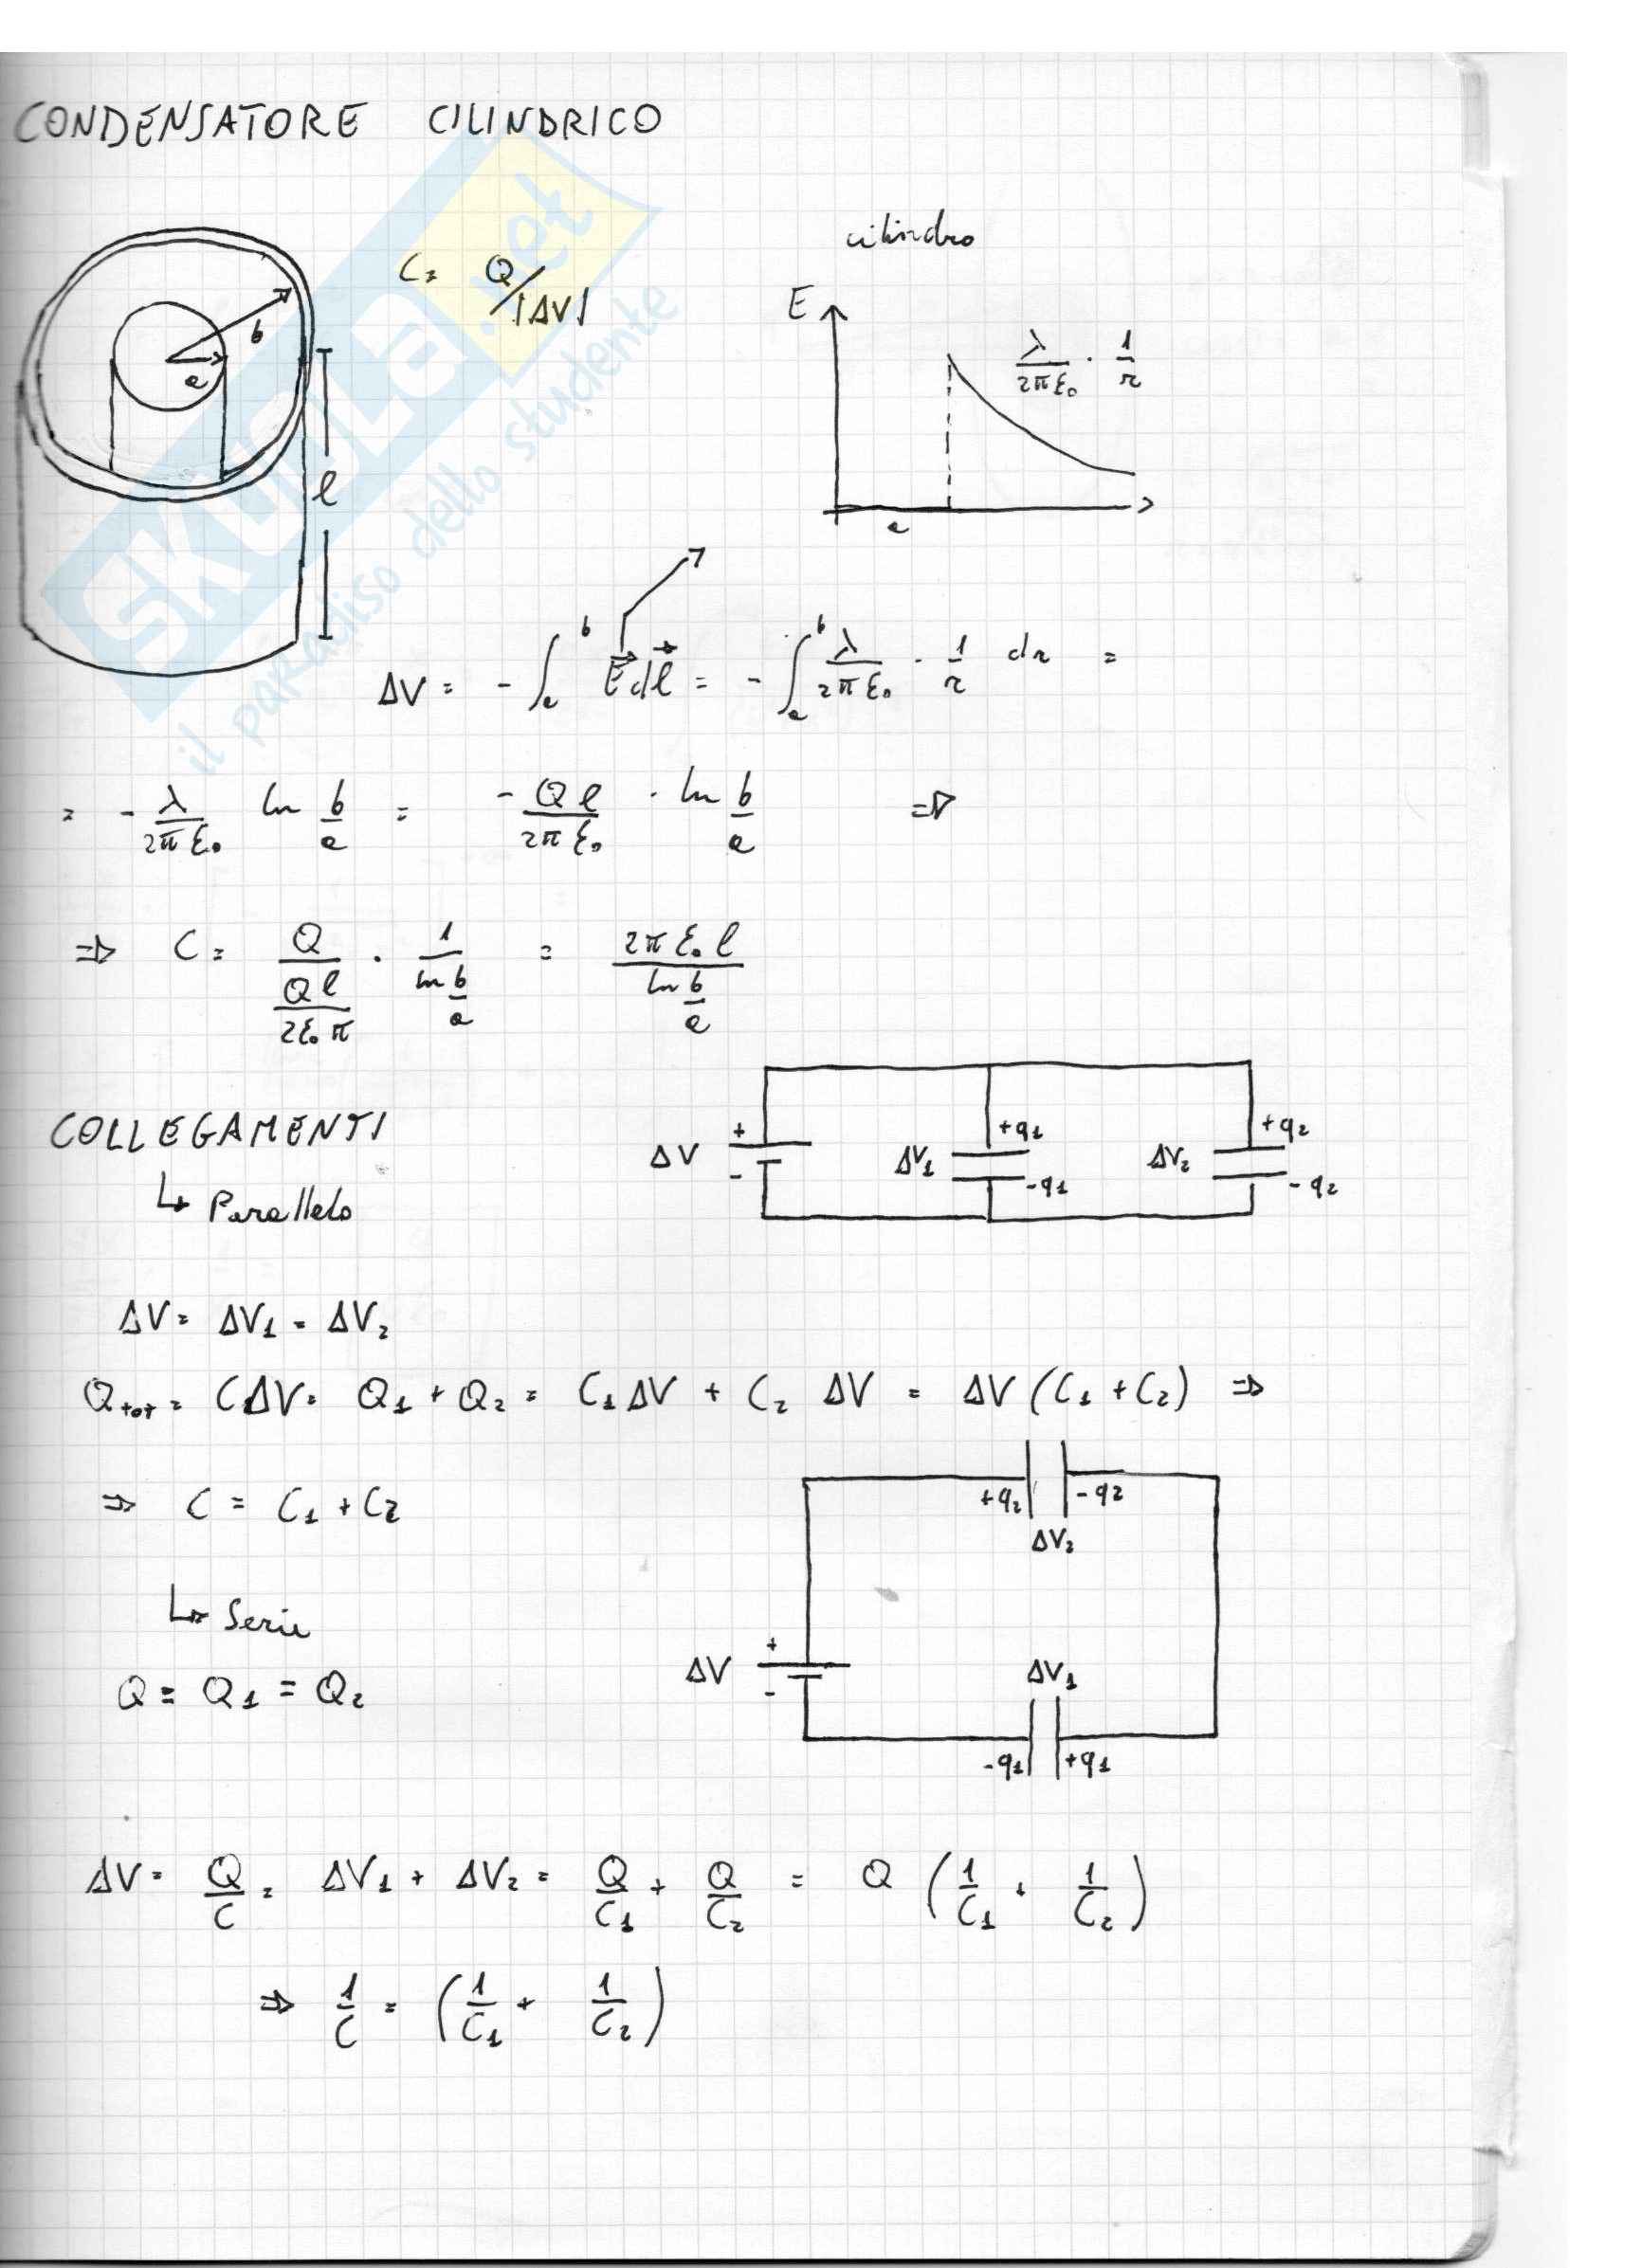 CONDENSATORE CILINDRICO
SKUOLA.net
il paradiso dello studente
C = Q/|ΔV|
b
a
l
cilindro
E
λ/2πε₀ · 1/r
a
ΔV = - ∫ₐᵇ E⃗ dl⃗ = - ∫ₐᵇ λ/2πε₀ · 1/r dr =
= - λ/2πε₀ ln b/a = - Ql/2πε₀ · ln b/a ⇒
⇒ C = Q/(Ql/2ε₀π) · 1/(ln b/a) = 2πε₀l/(ln b/a)
COLLEGAMENTI
↳ Parallelo
ΔV + - ΔV₁ +q₁ -q₁ ΔV₂ +q₂ -q₂
ΔV = ΔV₁ = ΔV₂
Qtot = CΔV = Q₁ + Q₂ = C₁ΔV + C₂ ΔV = ΔV (C₁ + C₂) ⇒
⇒ C = C₁ + C₂
+q₂ -q₂
ΔV₂
↳ Serie
Q = Q₁ = Q₂
ΔV + -
ΔV₁
-q₁ +q₁
ΔV = Q/C = ΔV₁ + ΔV₂ = Q/C₁ + Q/C₂ = Q (1/C₁ + 1/C₂)
⇒ 1/C = (1/C₁ + 1/C₂)